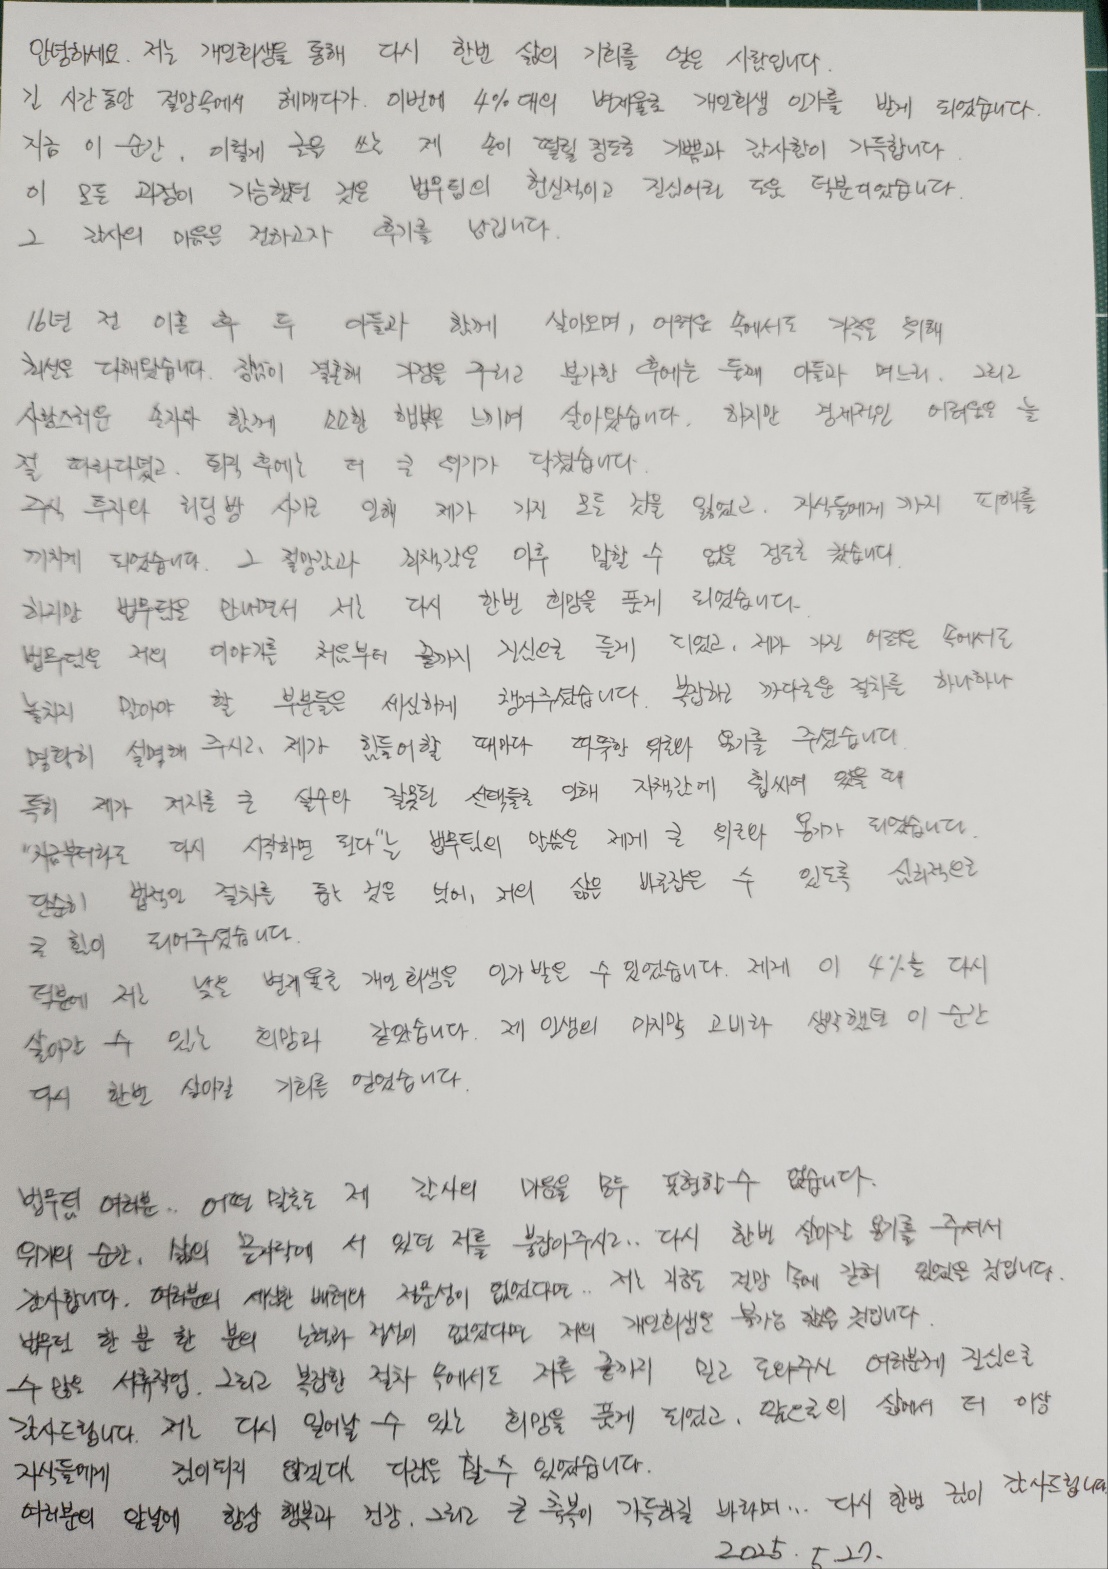 안녕하세요. 저는 개인회생을 통해 다시 한번 삶의 기회를 얻은 사람입니다.
긴 시간동안 절망속에서 헤매다가. 이번에 4%대의 변제율로 개인회생 인가를 받게 되었습니다.
지금 이 순간, 이렇게 글을 쓰는 제 손이 떨릴 정도로 기쁨과 감사함이 가득합니다.
이 모든 과정이 가능했던 것은 법무팀의 헌신적이고 진심어린 도움 덕분이었습니다.
그 감사의 마음을 전하고자 후기를 남깁니다.
16년 전 이혼 후 두 아들과 함께 살아오며, 어려운 속에서도 가족을 위해
최선을 다해왔습니다. 결혼해 가정을 꾸리고 분가한 후에는 둘째 아들과 며느리. 그리고
사랑스러운 손자와 함께 소소한 행복을 느끼며 살아왔습니다. 하지만 경제적인 어려움은 늘
절 따라다녔고. 퇴직 후에는 더 큰 위기가 닥쳤습니다.
주식 투자와 리딩방 사기로 인해 제가 가진 모든 것을 잃었고. 자식들에게까지 피해를
끼치게 되었습니다. 그 절망감과 죄책감은 이루 말할 수 없을 정도로 컸습니다.
하지만 법무팀을 만나면서 저는 다시 한번 희망을 품게 되었습니다.
법무팀은 저의 이야기를 처음부터 끝까지 진심으로 듣게 되었고, 제가 가진 어려운 속에서도
놓치지 말아야 할 부분들은 세심하게 챙겨주셨습니다. 복잡하고 까다로운 절차를 하나하나
명확히 설명해 주시고, 제가 힘들어할 때마다 따뜻한 위로와 용기를 주셨습니다.
특히 제가 저지른 큰 실수와 잘못된 선택들로 인해 자책감에 휩싸여 있을 때
"지금부터라도 다시 시작하면 된다"는 법무팀의 말씀은 제게 큰 위로와 용기가 되었습니다.
단순히 법적인 절차를 돕는 것은 넘어, 저의 삶은 바로잡을 수 있도록 심리적으로
큰 힘이 되어주셨습니다.
덕분에 저는 낮은 변제율로 개인회생을 인가받을 수 있었습니다. 제게 이 4%는 다시
살아갈 수 있는 희망과 같았습니다. 제 인생의 마지막 고비라 생각했던 이 순간
다시 한번 살아갈 기회를 얻었습니다.
법무팀 여러분.. 어떤 말로도 제 감사의 마음을 모두 표현할 수 없습니다.
위기의 순간, 삶의 끝자락에 서 있던 저를 붙잡아주시고.. 다시 한번 살아갈 용기를 주셔서
감사합니다. 여러분의 세심한 배려와 전문성이 없었다면.. 저는 지금도 절망 속에 갇혀 있었을 것입니다.
법무팀 한 분 한 분의 노력과 정성이 없었다면 저의 개인회생은 불가능 했을 것입니다.
수 많은 서류작업. 그리고 복잡한 절차 속에서도 저를 끝까지 믿고 도와주신 여러분께 진심으로
감사드립니다. 저는 다시 일어날 수 있는 희망을 품게 되었고, 앞으로의 삶에서 더 이상
자식들에게 짐이되지 않겠다는 다짐을 할 수 있었습니다.
여러분의 앞날에 항상 행복과 건강. 그리고 큰 축복이 가득하길 바라며... 다시 한번 깊이 감사드립니다
2025. 5.27.